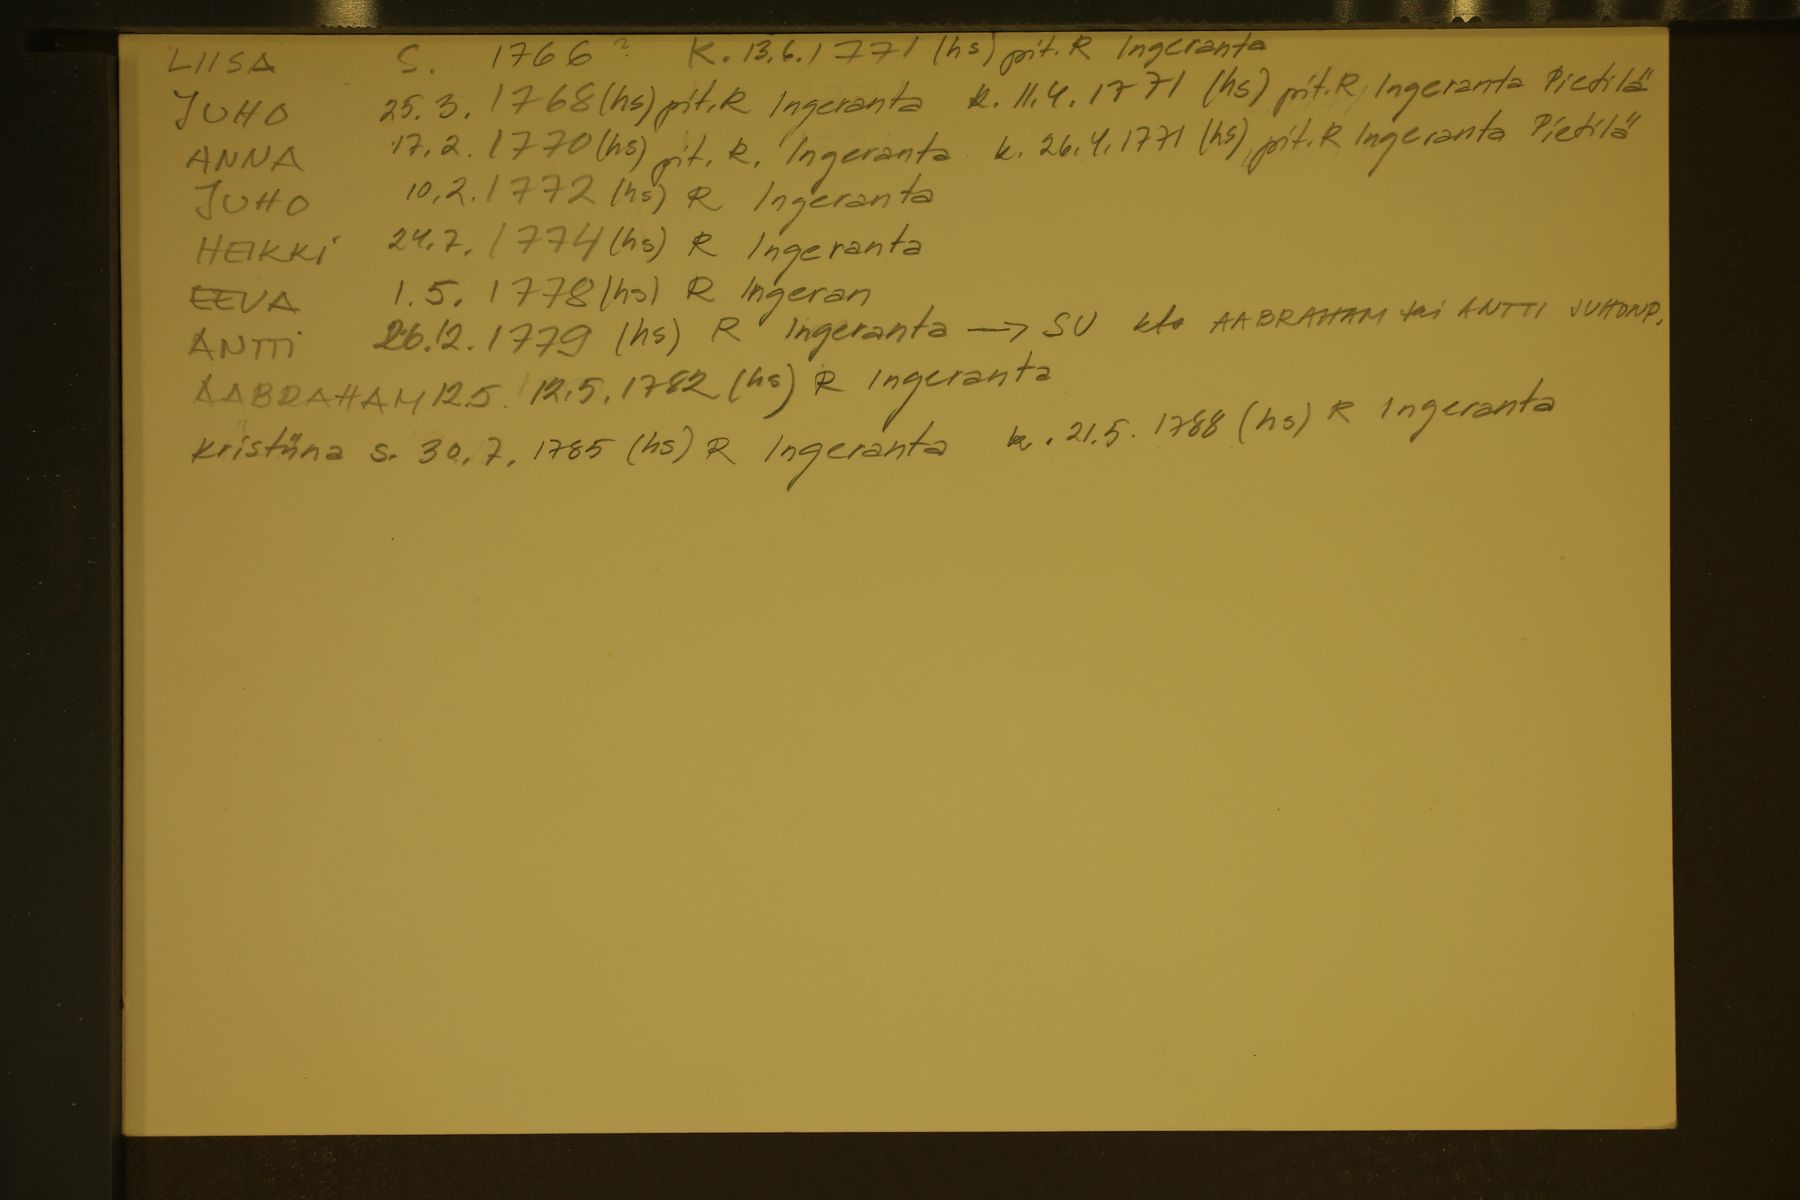 LIISA S. 1766? K. 13.6.1771 (hs) pit. R Ingeranta
JUHO 25.3.1768 (hs) pit. R Ingeranta k. 11.4.1771 (hs) pit. R Ingeranta Pietilä
ANNA 17.2.1770 (hs) pit. R. Ingeranta k. 26.4.1771 (hs) pit. R Ingeranta Pietilä
JUHO 10.2.1772 (hs) R Ingeranta
HEIKKI 24.7.1774 (hs) R Ingeranta
EEVA 1.5.1778 (hs) R Ingeran
ANTTI 26.12.1779 (hs) R Ingeranta → SU kts AABRAHAM tai ANTTI JUHONP.
AABRAHAM 12.5. 12.5.1782 (hs) R Ingeranta
Kristiina s. 30.7.1785 (hs) R Ingeranta k. 21.5.1788 (hs) R Ingeranta